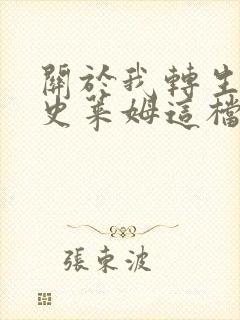 關於我轉生
史萊姆這檔
張東波